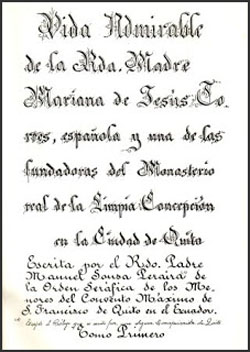 Vida Admirable
de la Rda. Madre
Mariana de Jesús To-
rres, española y una de las
fundadoras del Monasterio
real de la Limpia Concepción
en la Ciudad de Quito
Escrita por el Rdo. Padre
Manuel Sousa Peraira de
la Orden Seráfica de los Me-
nores del Convento Máximo de
S. Francisco de Quito en el Ecuador.
Tomo Primero